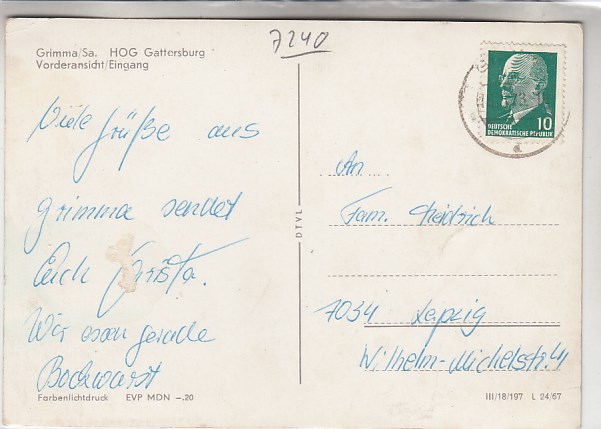 7240
Grimma/Sa. HOG Gattersburg
Vorderansicht/Eingang
Viele Grüße aus
Grimma sendet
Euch Krista.
Wir essen gerade
Bockwurst
Farbenlichtdruck EVP MDN –.20
DTVL
10
DEUTSCHE
DEMOKRATISCHE REPUBLIK
An
Fam.
7034 Leipzig
Wilhelm-Michelstr. 41
III/18/197 L 24/67